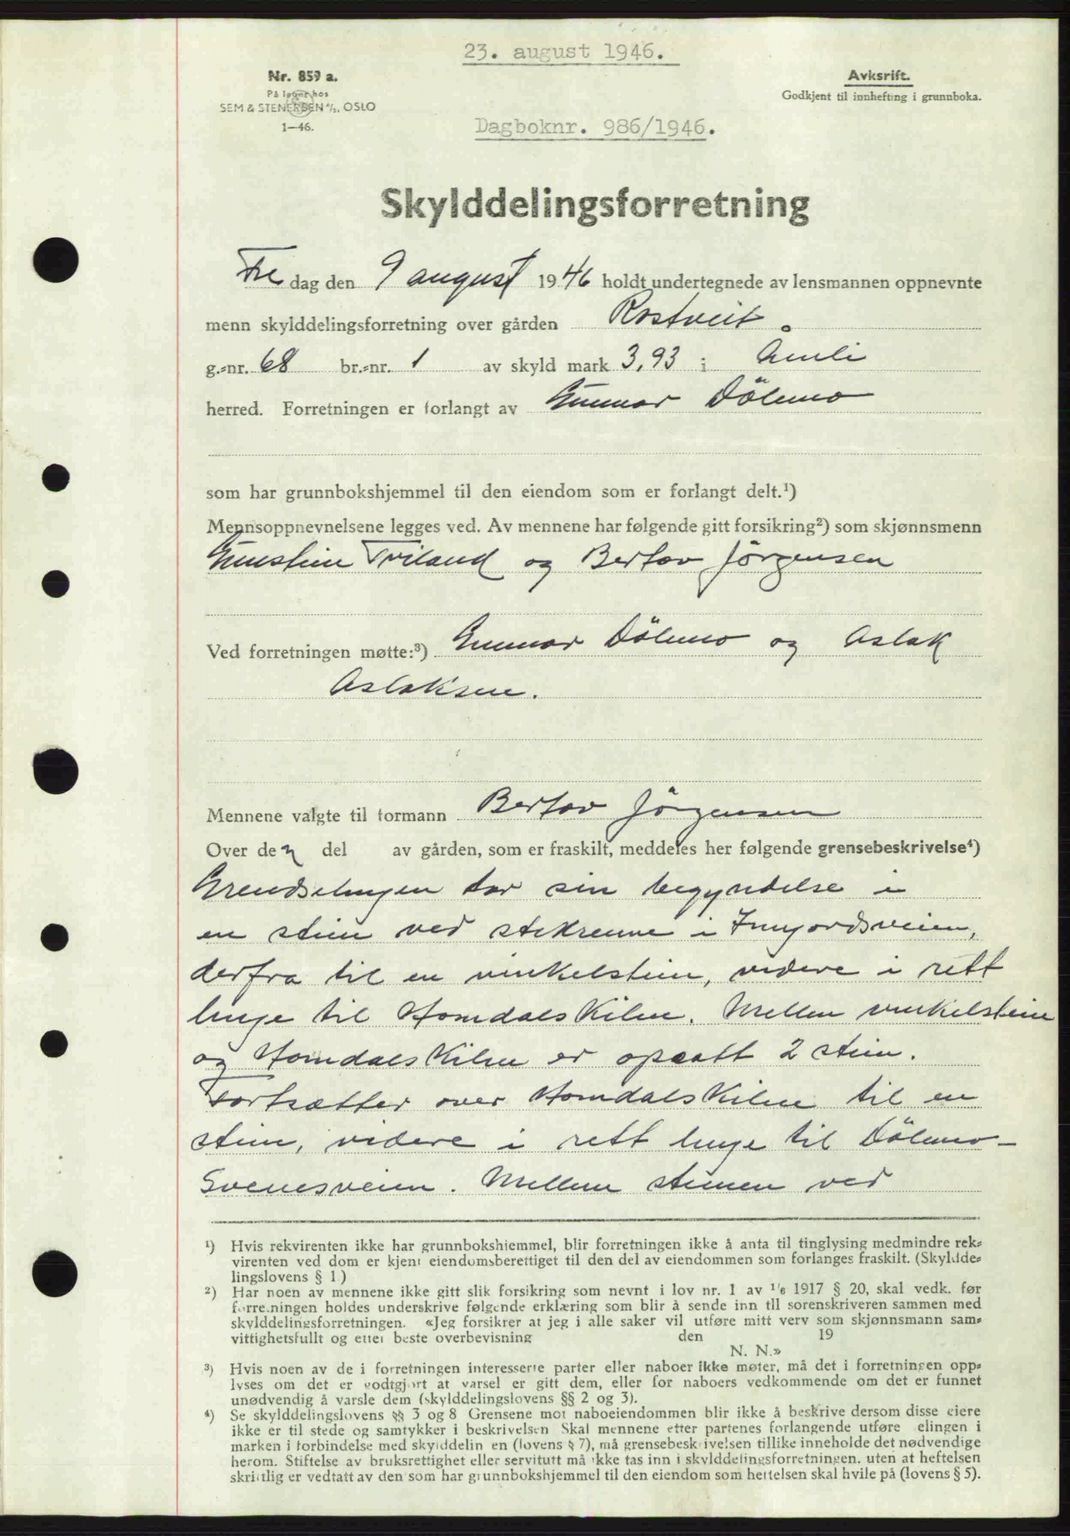 23. august 1946.
Nr. 859 a.
På lager hos
SEM & STENERSEN A/S, OSLO
1—46.
Avksrift.
Godkjent til innhefting i grunnboka.
Dagboknr. 986/1946.
Skylddelingsforretning
Fre dag den 9 august 1946 holdt undertegnede av lensmannen oppnevnte
menn skylddelingsforretning over gården Rostveit
g.-nr. 68 br.-nr. 1 av skyld mark 3,93 i Åmli
herred. Forretningen er forlangt av Gunnar Dölemo
som har grunnbokshjemmel til den eiendom som er forlangt delt.¹)
Mennsoppnevnelsene legges ved. Av mennene har følgende gitt forsikring²) som skjønnsmenn
Gunstein Tviland og Bertov Jörgensen
Ved forretningen møtte:³) Gunnar Dölemo og Aslak
Aslaksen.
Mennene valgte til formann Bertov Jörgensen
Over den del av gården, som er fraskilt, meddeles her følgende grensebeskrivelse⁴)
Grendselingen tar sin begyndelse i
en stein ved stikrenne i Innjordsveien,
derfra til en vinkelstein, videre i rett
linje til Homdalskilen. Mellem vinkelstein
og Homdalskilen er opsatt 2 stein.
Fortsætter over Homdalskilen til en
stein, videre i rett linje til Dölemo-
Svenesveien. Mellem steinen ved
¹) Hvis rekvirenten ikke har grunnbokshjemmel, blir forretningen ikke å anta til tinglysing medmindre rek-
virenten ved dom er kjent eiendomsberettiget til den del av eiendommen som forlanges fraskilt. (Skyldde-
lingslovens § 1)
²) Har noen av mennene ikke gitt slik forsikring som nevnt i lov nr. 1 av ¹/6 1917 § 20, skal vedk. før
forretningen holdes underskrive følgende erklæring som blir å sende inn til sorenskriveren sammen med
skylddelingsforretningen. «Jeg forsikrer at jeg i alle saker vil utføre mitt verv som skjønnsmann sam-
vittighetsfullt og etter beste overbevisning den 19
N. N.»
³) Hvis noen av de i forretningen interesserte parter eller naboer ikke møter, må det i forretningen opp-
lyses om det er godtgjort at varsel er gitt dem, eller for naboers vedkommende om det er funnet
unødvendig å varsle dem (skylddelingslovens §§ 2 og 3).
⁴) Se skylddelingslovens §§ 3 og 8 Grensene mot naboeiendommen blir ikke å beskrive dersom disse eiere
ikke er til stede og samtykker i beskrivelsen Skal mennene etter partenes forlangende utføre elingen i
marken i forbindelse med skylddelin en (lovens § 7), må grensebeskrivelsen tillike inneholde det nødvendige
herom. Stiftelse av bruksrettighet eller servitutt må ikke tas inn i skylddelingsforretningen, uten at heftelsen
skriftlig er vedtatt av den som har grunnbokshjemmel til den eiendom som heftelsen skal hvile på (lovens § 5).